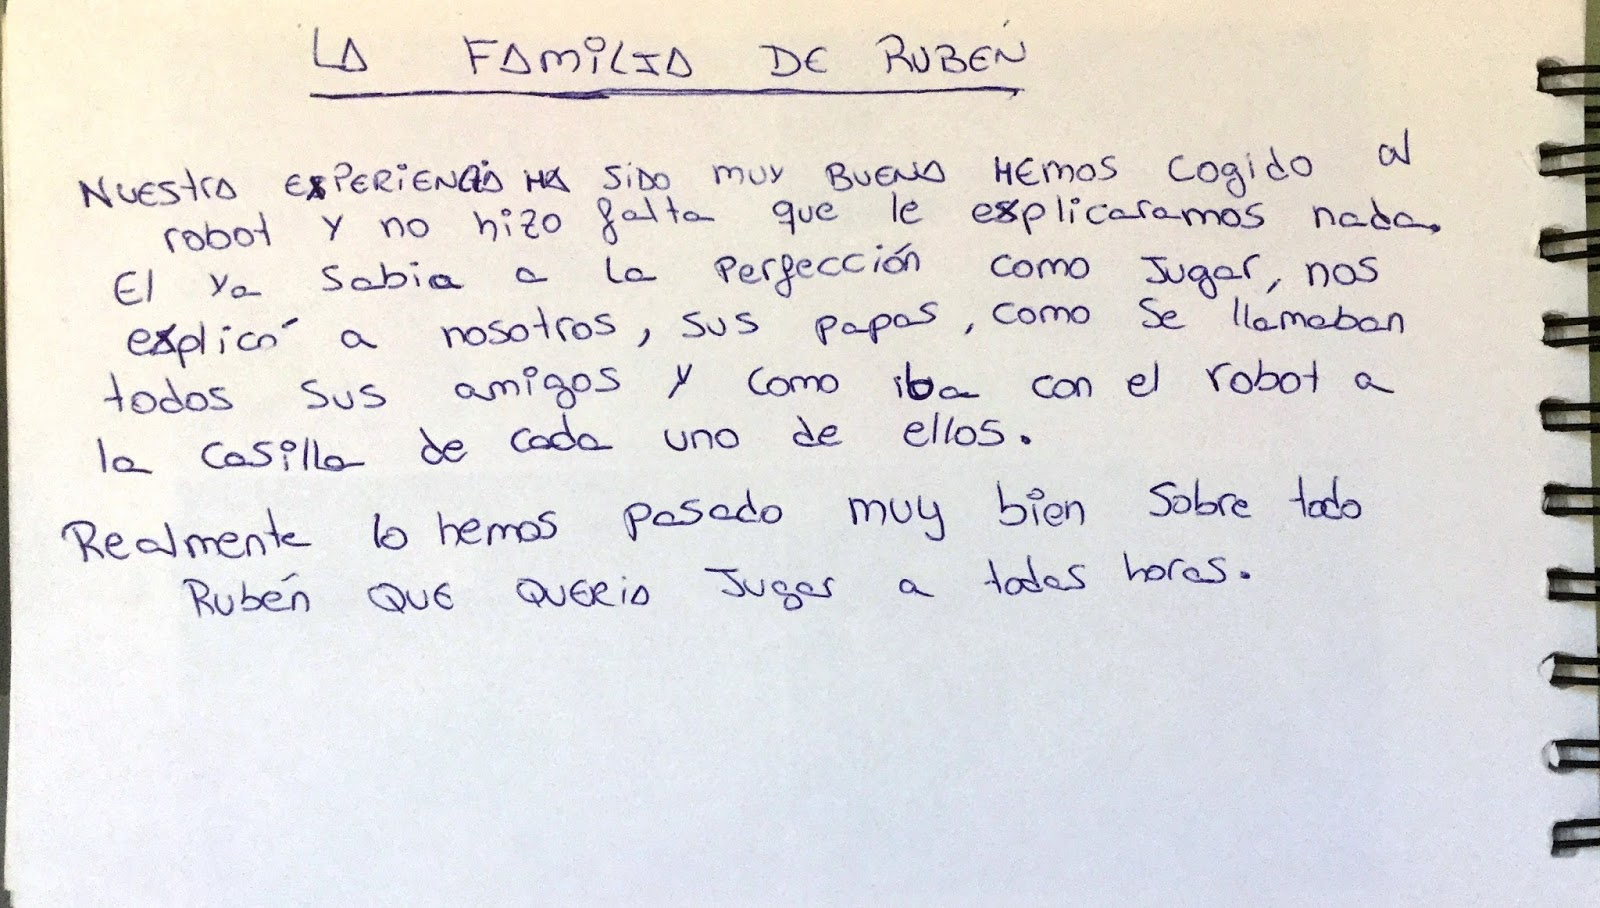 LA FAMILIA DE RUBÉN
NUESTRA EXPERIENCIA HA SIDO MUY BUENA HEMOS cogido al
robot y no hizo falta que le explicaramos nada.
El ya sabia a la perfección como jugar, nos
explicó a nosotros, sus papas, como se llamaban
todos sus amigos y como iba con el robot a
la casilla de cada uno de ellos.
Realmente lo hemos pasado muy bien sobre todo
Rubén QUE QUERIA jugar a todas horas.